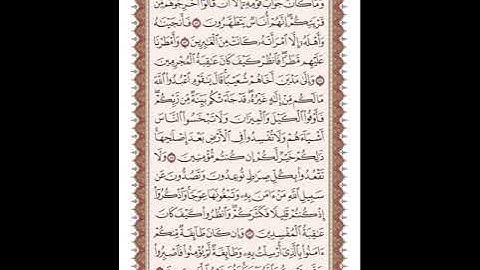 وَمَا كَانَ جَوَابَ قَوْمِهِۦٓ إِلَّآ أَن قَالُوٓا۟ أَخْرِجُوهُم مِّن
قَرْيَتِكُمْ ۖ إِنَّهُمْ أُنَاسٌ يَتَطَهَّرُونَ ۝ فَأَنجَيْنَٰهُ
وَأَهْلَهُۥٓ إِلَّا ٱمْرَأَتَهُۥ كَانَتْ مِنَ ٱلْغَٰبِرِينَ ۝ وَأَمْطَرْنَا
عَلَيْهِم مَّطَرًا ۖ فَٱنظُرْ كَيْفَ كَانَ عَٰقِبَةُ ٱلْمُجْرِمِينَ
۝ وَإِلَىٰ مَدْيَنَ أَخَاهُمْ شُعَيْبًا ۗ قَالَ يَٰقَوْمِ ٱعْبُدُوا۟ ٱللَّهَ
مَا لَكُم مِّنْ إِلَٰهٍ غَيْرُهُۥ ۖ قَدْ جَآءَتْكُم بَيِّنَةٌ مِّن رَّبِّكُمْ ۖ
فَأَوْفُوا۟ ٱلْكَيْلَ وَٱلْمِيزَانَ وَلَا تَبْخَسُوا۟ ٱلنَّاسَ
أَشْيَآءَهُمْ وَلَا تُفْسِدُوا۟ فِى ٱلْأَرْضِ بَعْدَ إِصْلَٰحِهَا ۚ
ذَٰلِكُمْ خَيْرٌ لَّكُمْ إِن كُنتُم مُّؤْمِنِينَ ۝ وَلَا
تَقْعُدُوا۟ بِكُلِّ صِرَٰطٍ تُوعِدُونَ وَتَصُدُّونَ عَن
سَبِيلِ ٱللَّهِ مَنْ ءَامَنَ بِهِۦ وَتَبْغُونَهَا عِوَجًا ۚ وَٱذْكُرُوٓا۟
إِذْ كُنتُمْ قَلِيلًا فَكَثَّرَكُمْ ۖ وَٱنظُرُوا۟ كَيْفَ كَانَ
عَٰقِبَةُ ٱلْمُفْسِدِينَ ۝ وَإِن كَانَ طَآئِفَةٌ مِّنكُمْ
ءَامَنُوا۟ بِٱلَّذِىٓ أُرْسِلْتُ بِهِۦ وَطَآئِفَةٌ لَّمْ يُؤْمِنُوا۟ فَٱصْبِرُوا۟